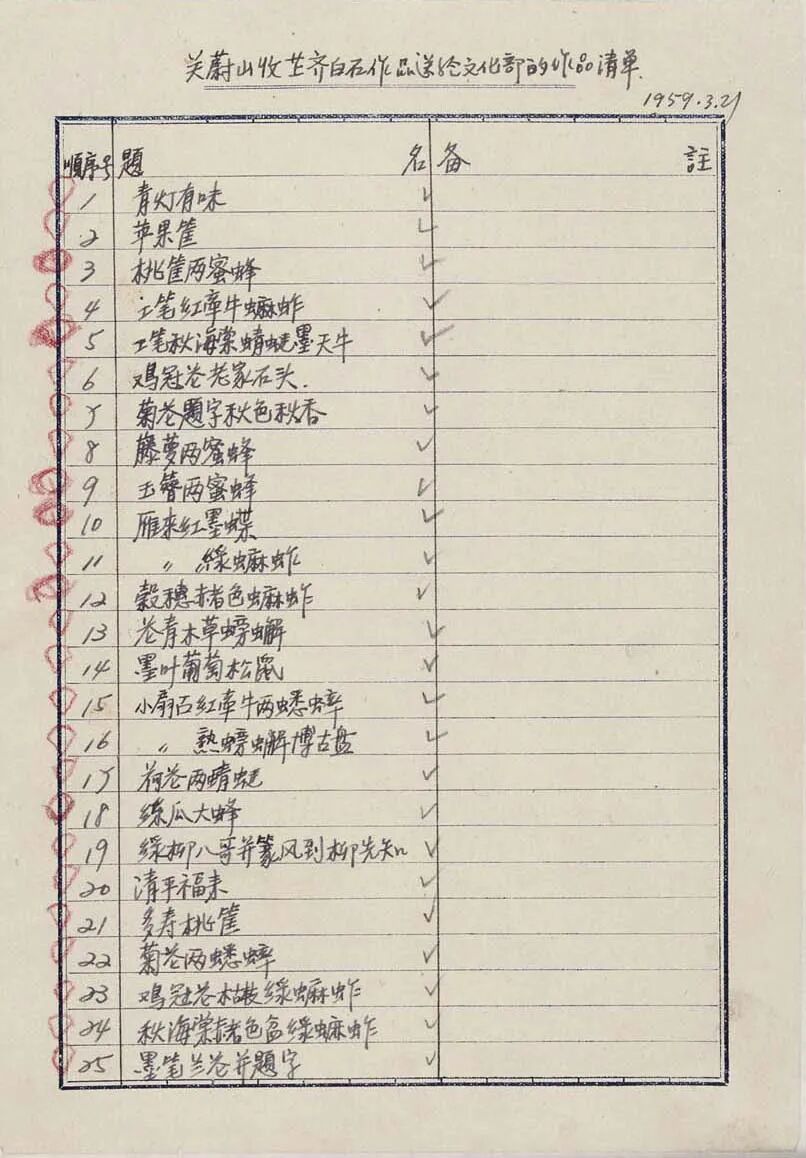 关蔚山收芷齐白石作品送给文化部的作品清单.
1959.3.21
順序号 題 名 备 註
1 青灯有味
2 苹果筐
3 桃筐两蜜蜂
4 工笔红牵牛蚂蚱
5 工笔秋海棠蜻蜓墨天牛
6 鸡冠花老家石头.
7 菊花題字秋色秋香
8 藤萝两蜜蜂
9 玉簪两蜜蜂
10 雁来红墨蝶
11 〃 綠蚂蚱
12 穀穗赭色蚂蚱
13 花青木草螃蟹
14 墨叶葡萄松鼠
15 小扇面红牵牛两蟋蟀
16 〃 熟螃蟹博古盘
17 荷花两蜻蜓
18 絲瓜大蜂
19 綠柳八哥并篆风到柳先知
20 清平福来
21 多寿桃筐
22 菊花两蟋蟀
23 鸡冠花枯枝綠蚂蚱
24 秋海棠赭色盆綠蚂蚱
25 墨笔兰花并題字